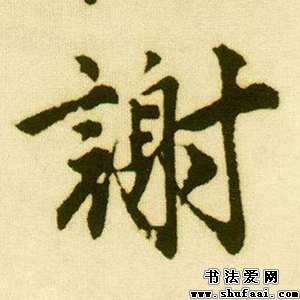 謝
书法爱网
www.shufaai.com